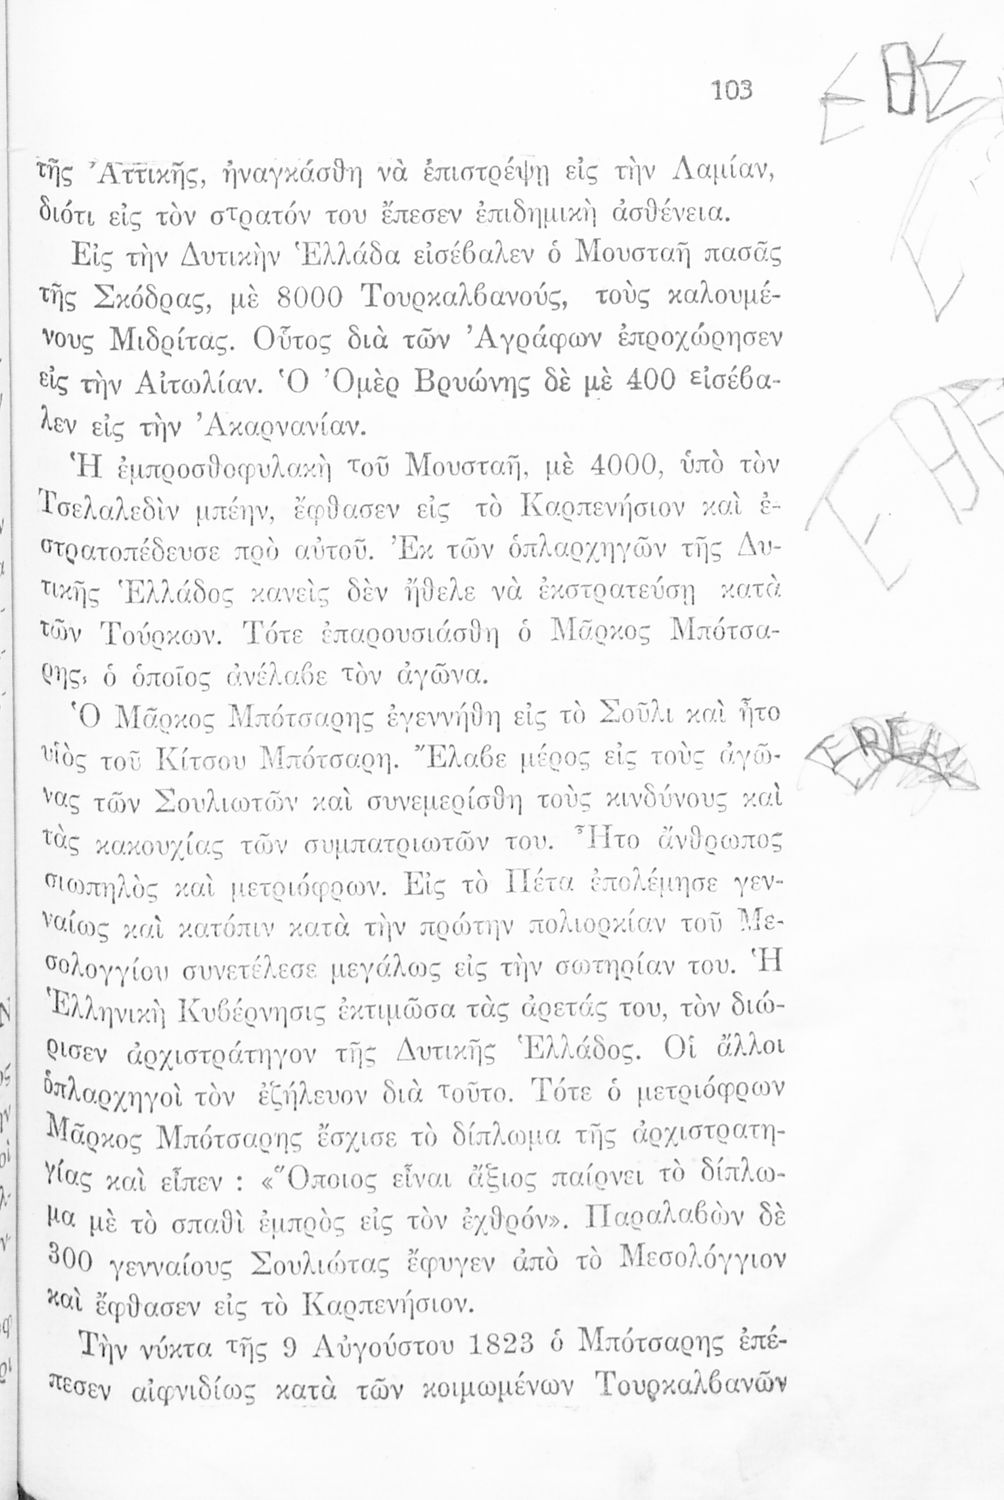 103
τῆς Ἀττικῆς, ἠναγκάσθη νὰ ἐπιστρέψῃ εἰς τὴν Λαμίαν,
διότι εἰς τὸν στρατόν του ἔπεσεν ἐπιδημικὴ ἀσθένεια.
Εἰς τὴν Δυτικὴν Ἑλλάδα εἰσέβαλεν ὁ Μουσταῆ πασᾶς
τῆς Σκόδρας, μὲ 8000 Τουρκαλβανούς, τοὺς καλουμέ-
νους Μιδρίτας. Οὗτος διὰ τῶν Ἀγράφων ἐπροχώρησεν
εἰς τὴν Αἰτωλίαν. Ὁ Ὀμὲρ Βρυώνης δὲ μὲ 400 εἰσέβα-
λεν εἰς τὴν Ἀκαρνανίαν.
Ἡ ἐμπροσθοφυλακὴ τοῦ Μουσταῆ, μὲ 4000, ὑπὸ τὸν
Τσελαλεδὶν μπέην, ἔφθασεν εἰς τὸ Καρπενήσιον καὶ ἐ-
στρατοπέδευσε πρὸ αὐτοῦ. Ἐκ τῶν ὁπλαρχηγῶν τῆς Δυ-
τικῆς Ἑλλάδος κανεὶς δὲν ἤθελε νὰ ἐκστρατεύσῃ κατὰ
τῶν Τούρκων. Τότε ἐπαρουσιάσθη ὁ Μᾶρκος Μπότσα-
ρης, ὁ ὁποῖος ἀνέλαβε τὸν ἀγῶνα.
Ὁ Μᾶρκος Μπότσαρης ἐγεννήθη εἰς τὸ Σοῦλι καὶ ἦτο
υἱὸς τοῦ Κίτσου Μπότσαρη. Ἔλαβε μέρος εἰς τοὺς ἀγῶ-
νας τῶν Σουλιωτῶν καὶ συνεμερίσθη τοὺς κινδύνους καὶ
τὰς κακουχίας τῶν συμπατριωτῶν του. Ἦτο ἄνθρωπος
σιωπηλὸς καὶ μετριόφρων. Εἰς τὸ Πέτα ἐπολέμησε γεν-
ναίως καὶ κατόπιν κατὰ τὴν πρώτην πολιορκίαν τοῦ Με-
σολογγίου συνετέλεσε μεγάλως εἰς τὴν σωτηρίαν του. Ἡ
Ἑλληνικὴ Κυβέρνησις ἐκτιμῶσα τὰς ἀρετάς του, τὸν διώ-
ρισεν ἀρχιστράτηγον τῆς Δυτικῆς Ἑλλάδος. Οἱ ἄλλοι
ὁπλαρχηγοὶ τὸν ἐζήλευον διὰ τοῦτο. Τότε ὁ μετριόφρων
Μᾶρκος Μπότσαρης ἔσχισε τὸ δίπλωμα τῆς ἀρχιστρατη-
γίας καὶ εἶπεν : «Ὅποιος εἶναι ἄξιος παίρνει τὸ δίπλω-
μα μὲ τὸ σπαθὶ ἐμπρὸς εἰς τὸν ἐχθρόν». Παραλαβὼν δὲ
300 γενναίους Σουλιώτας ἔφυγεν ἀπὸ τὸ Μεσολόγγιον
καὶ ἔφθασεν εἰς τὸ Καρπενήσιον.
Τὴν νύκτα τῆς 9 Αὐγούστου 1823 ὁ Μπότσαρης ἐπέ-
πεσεν αἰφνιδίως κατὰ τῶν κοιμωμένων Τουρκαλβανῶν